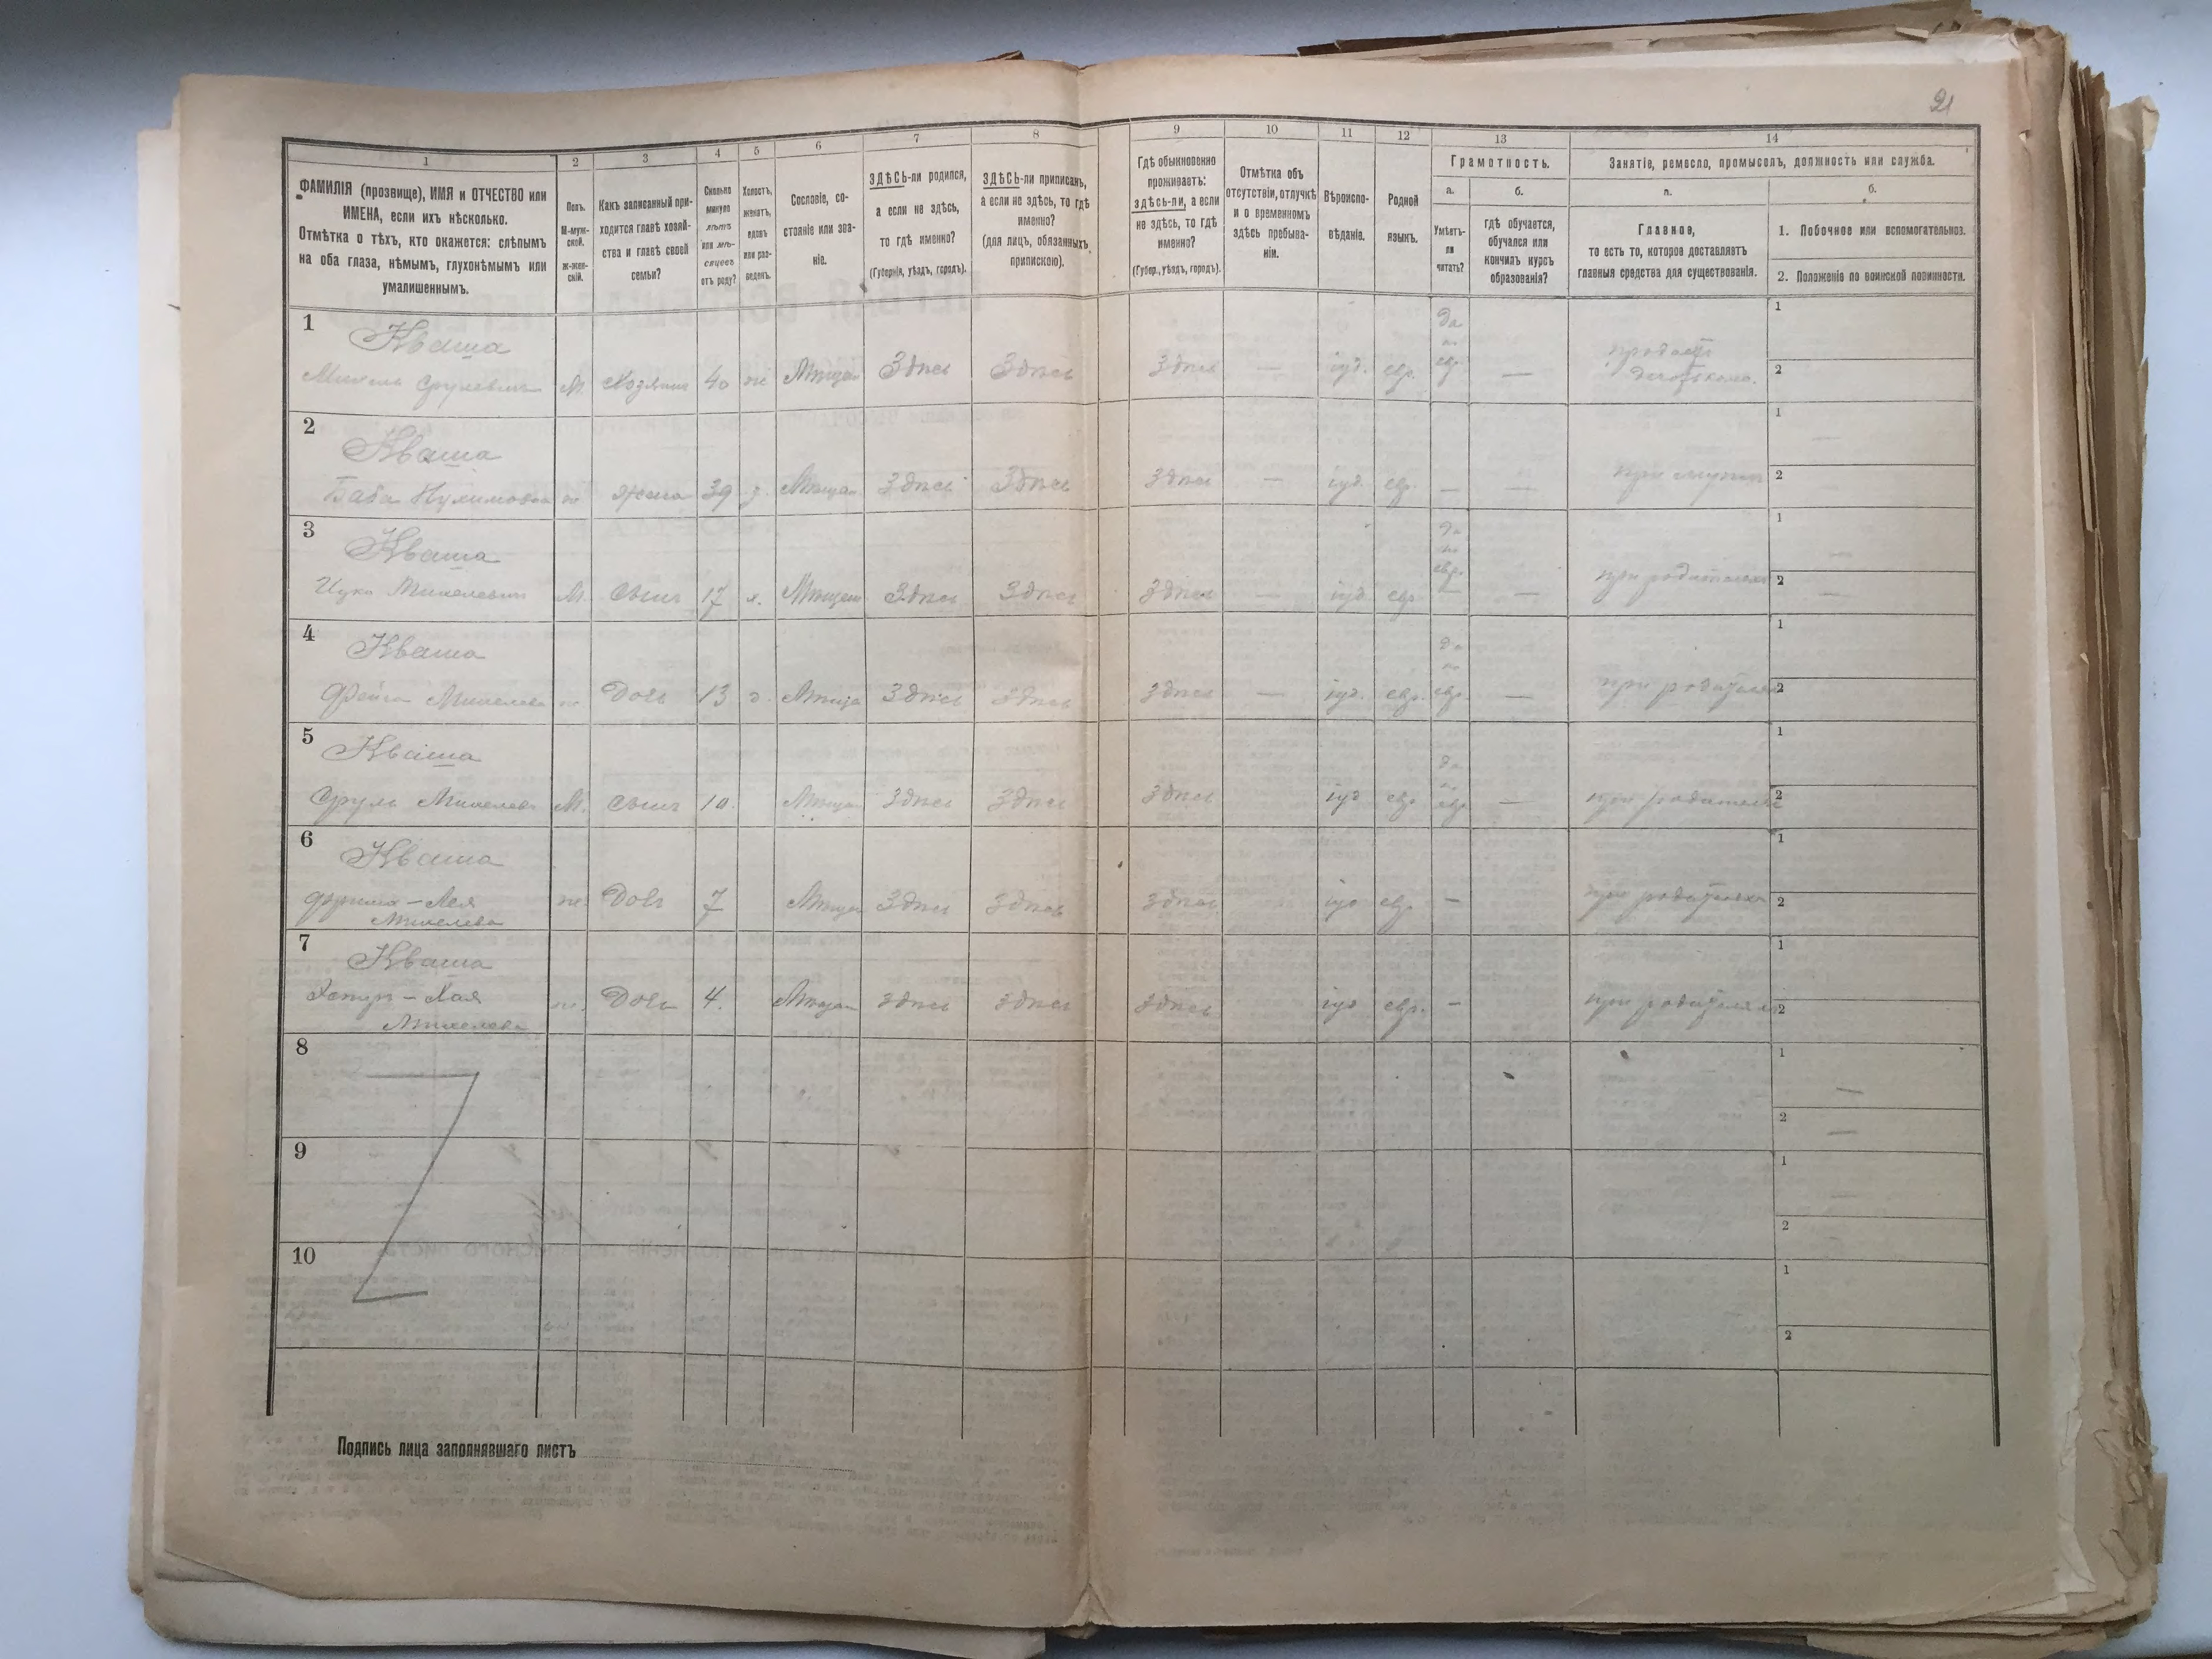 21
1
2
3
4
5
6
7
8
9
10
11
12
13
14
ФАМИЛІЯ (прозвище), ИМЯ и ОТЧЕСТВО или
ИМЕНА, если ихъ нѣсколько.
Отмѣтка о тѣхъ, кто окажется: слѣпымъ
на оба глаза, нѣмымъ, глухонѣмымъ или
умалишеннымъ.
Полъ.
М-муж-
ской.
ж-жен-
скій.
Какъ записанный при-
ходится главѣ хозяй-
ства и главѣ своей
семьи?
Сколько
минуло
лѣтъ
или мѣ-
сяцевъ
отъ роду?
Холостъ,
женатъ,
вдовъ
или раз-
веденъ.
Сословіе, со-
стояніе или зва-
ніе.
ЗДѢСЬ-ли родился,
а если не здѣсь,
то гдѣ именно?
(Губернія, уѣздъ, городъ).
ЗДѢСЬ-ли приписанъ,
а если не здѣсь, то гдѣ
именно?
(для лицъ, обязанныхъ
припискою).
Гдѣ обыкновенно
проживаетъ:
здѣсь-ли, а если
не здѣсь, то гдѣ
именно?
(Губер., уѣздъ, городъ).
Отмѣтка объ
отсутствіи, отлучкѣ
и о временномъ
здѣсь пребыва-
ніи.
Вѣроиспо-
вѣданіе.
Родной
языкъ.
Грамотность.
а.
Умѣетъ-
ли
читать?
б.
гдѣ обучается,
обучался или
кончилъ курсъ
образованія?
Занятіе, ремесло, промыселъ, должность или служба.
а.
Главное,
то есть то, которое доставляетъ
главныя средства для существованія.
б.
1. Побочное или вспомогательное.
2. Положеніе по воинской повинности.
1
Кваша
М. Хозяинъ 40 ж Мѣщан Здѣсь Здѣсь Здѣсь — іуд. евр. да евр —
1
2
2
Кваша
Баба ж жена 39 з. Мѣщан Здѣсь Здѣсь Здѣсь — іуд. евр. — —
1
2
3
Кваша
М. сынъ 17 х. Мѣщан Здѣсь Здѣсь Здѣсь — іуд евр да евр. — при родителяхъ
1
2
4
Кваша
Фейга Михелева ж Дочь 13 д. Мѣща Здѣсь Здѣсь Здѣсь — іуд. евр. да евр. — при родителях
1
2
5
Кваша
Сруль Михелев М. сынъ 10. Мѣщан Здѣсь Здѣсь Здѣсь іуд евр да евр — при родителях
1
2
6
Кваша
Лея ж Дочь 7 Мѣщан Здѣсь Здѣсь Здѣсь іуд евр — при родителях
Михелева
1
2
7
Кваша
Хая ж. Дочь 4. Мѣщан Здѣсь Здѣсь Здѣсь іуд евр. — при родителях
Михелева
1
2
8
1
2
9
1
2
10
1
2
Подпись лица заполнявшаго листъ